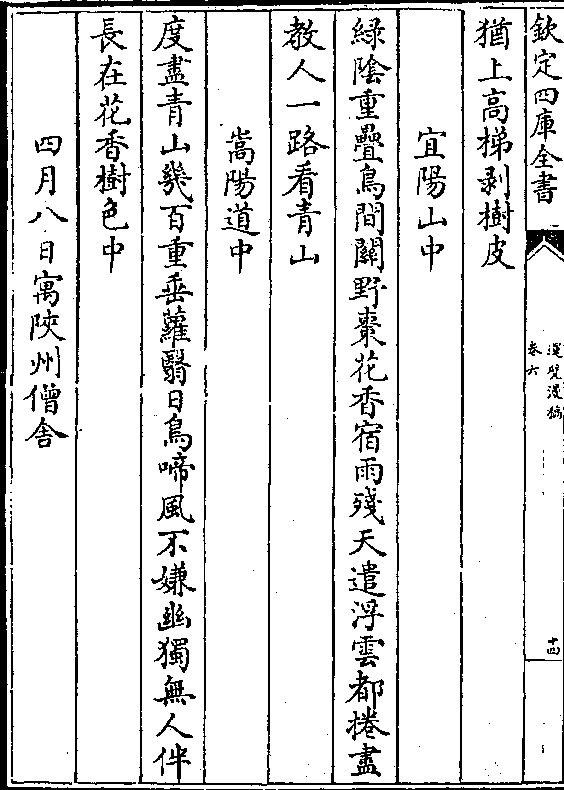 欽定四庫全書
運甓漫稿
卷六
十四
猶上高梯剥樹皮
宜陽山中
緑陰重疊鳥間關野棗花香宿雨殘天遣浮雲都捲盡
教人一路看青山
嵩陽道中
度盡青山幾百重垂蘿翳日鳥啼風不嫌幽獨無人伴
長在花香樹色中
四月八日寓陜州僧舍